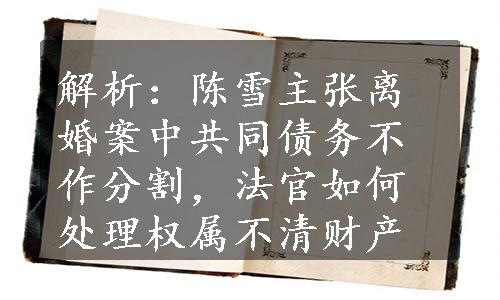 解析：陈雪主张离
婚案中共同债务不
作分割，法官如何
处理权属不清财产